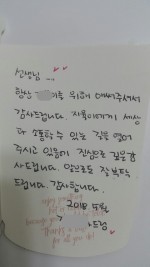 선생님...
항상 이를 위해 애써주셔서
감사드립니다. 자폴이에게 세상
과 소통할 수 있는 길을 열어
주시고 있음에 진심으로 깊은 감
사드립니다. 앞으로도 잘 부탁
드립니다. 감사합니다.
2018 4월
드림